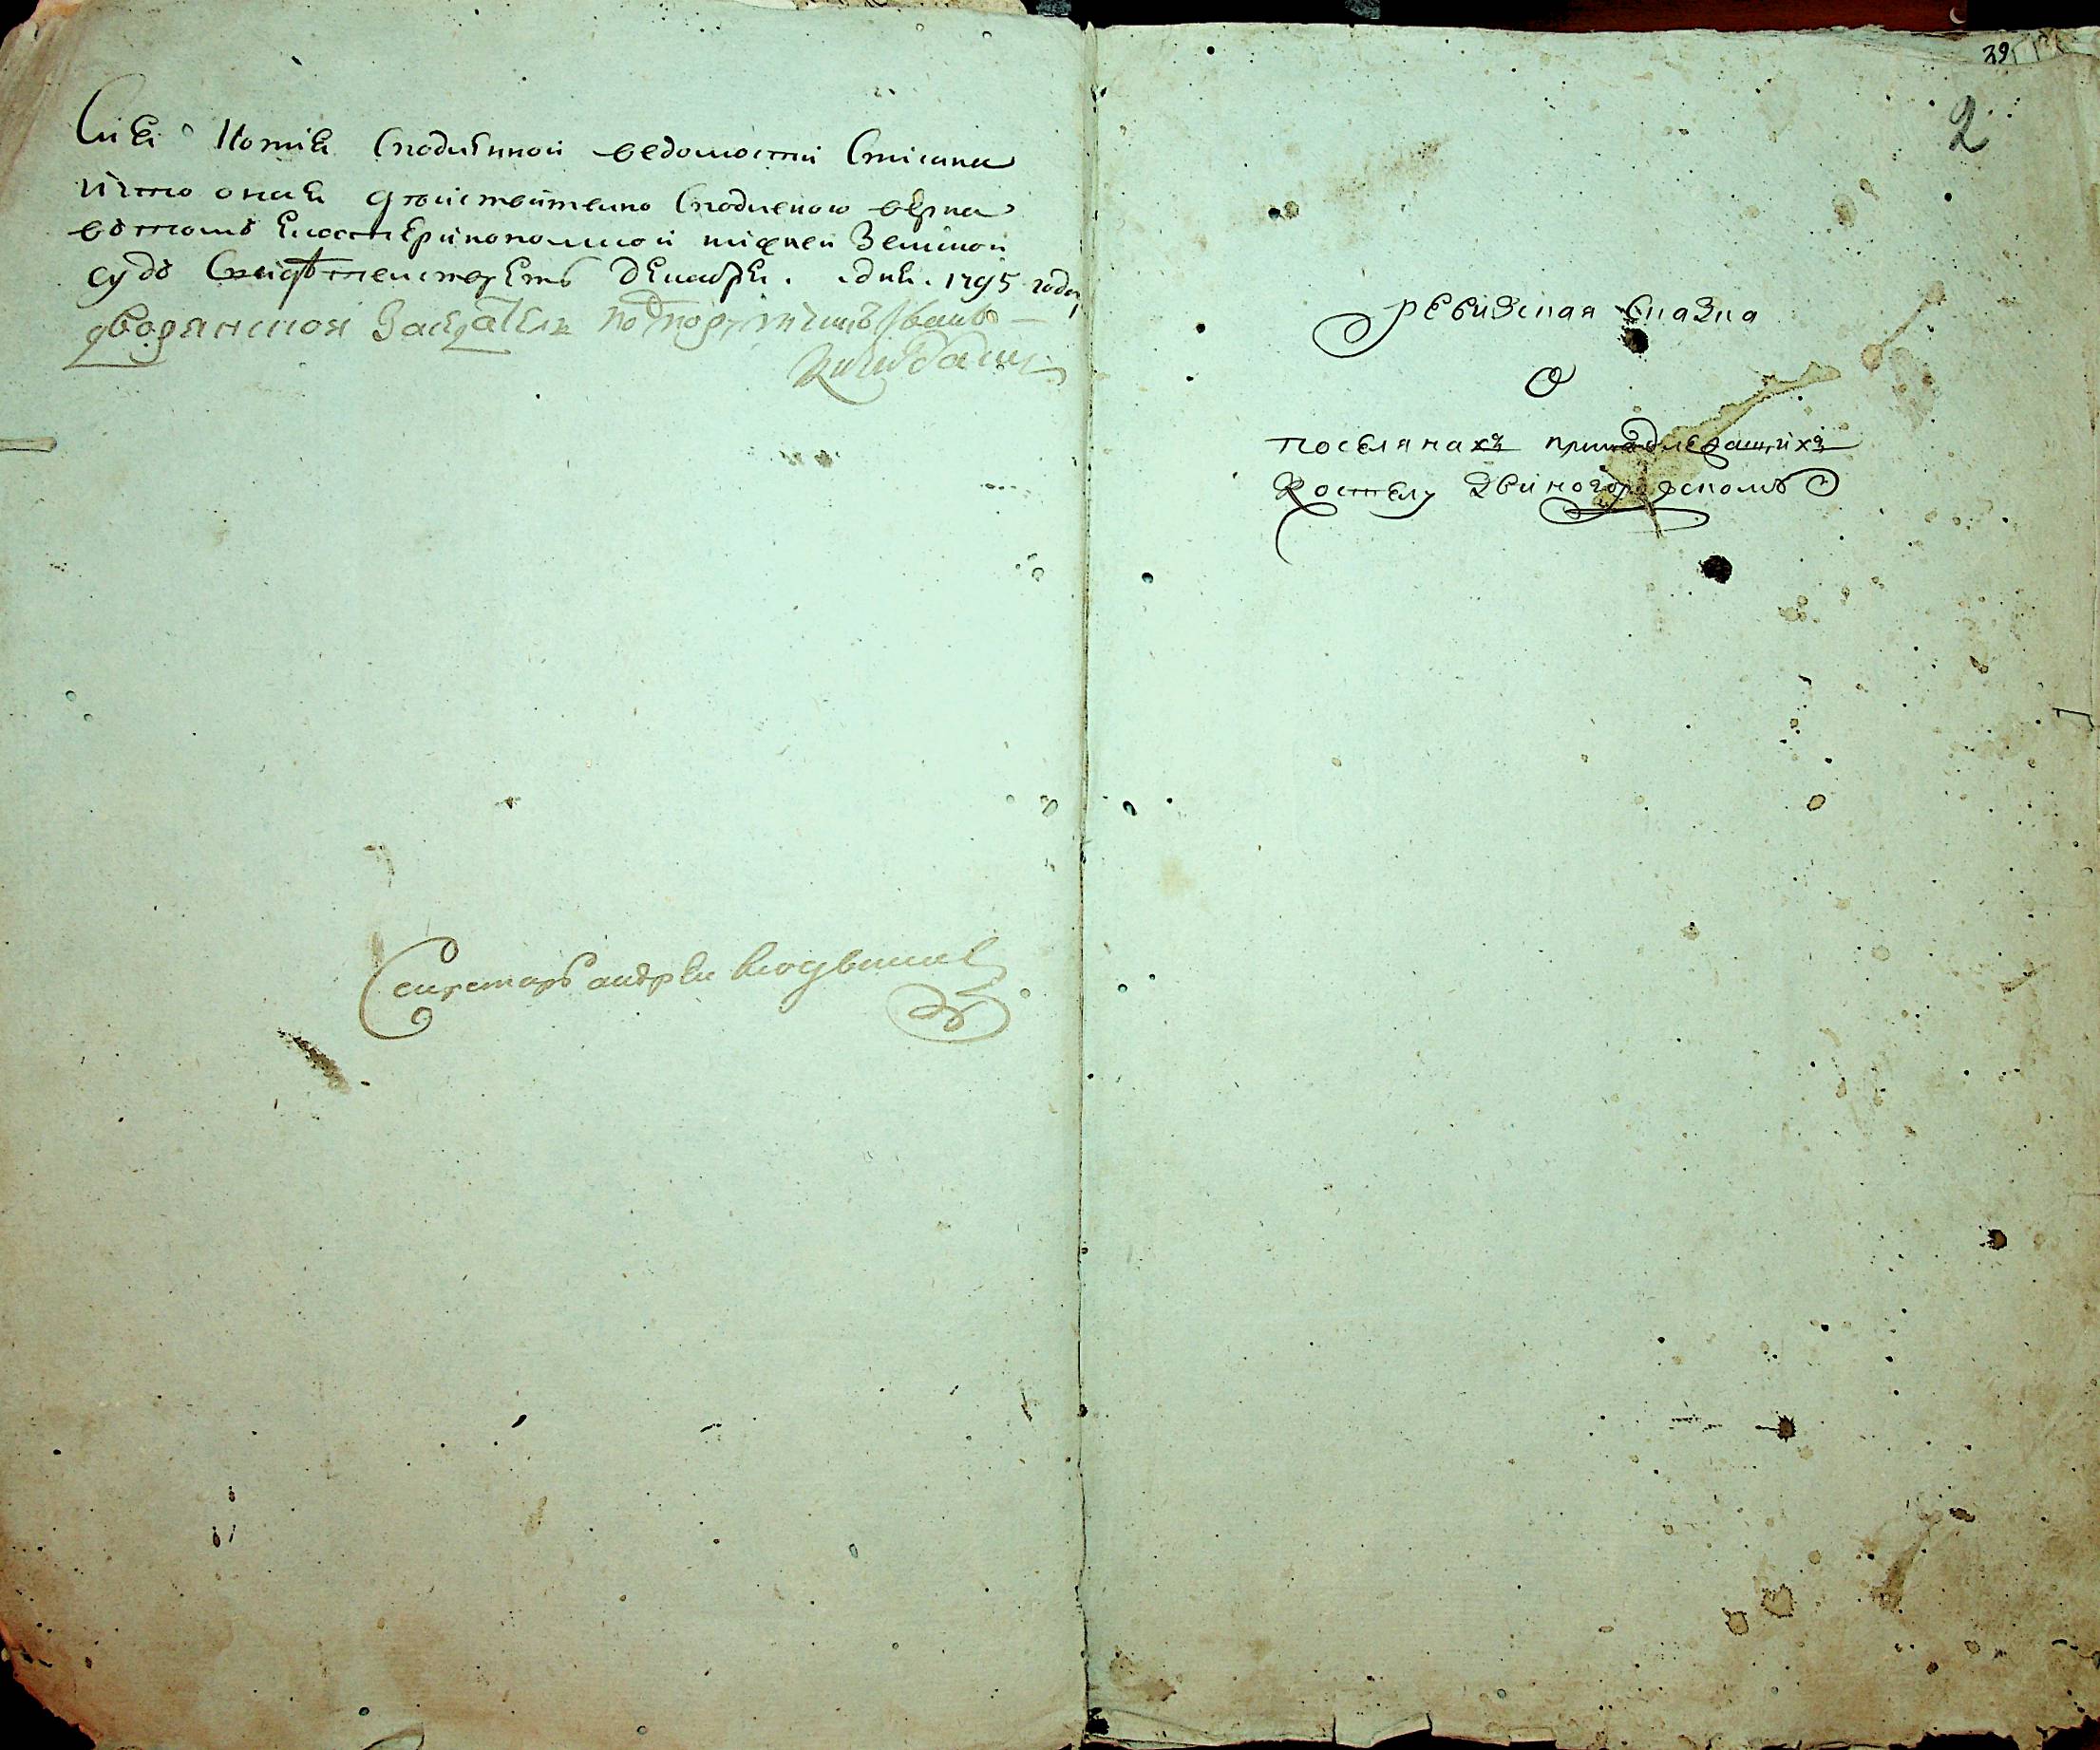 Сия Копия сподлинной ведомости Списана
и что оная действительно сподленою верна
вътомъ Екатеринопольской нижней Земской
судъ Свидѣтельствуетъ Декабря. дня. 1795 года
дворянской Заседатель подпорутчикъ Иванъ
Секретарь андрей
39
2
ревизская Сказка
О
поселянахъ принадлежащихъ
Костелу Звиногородскомъ